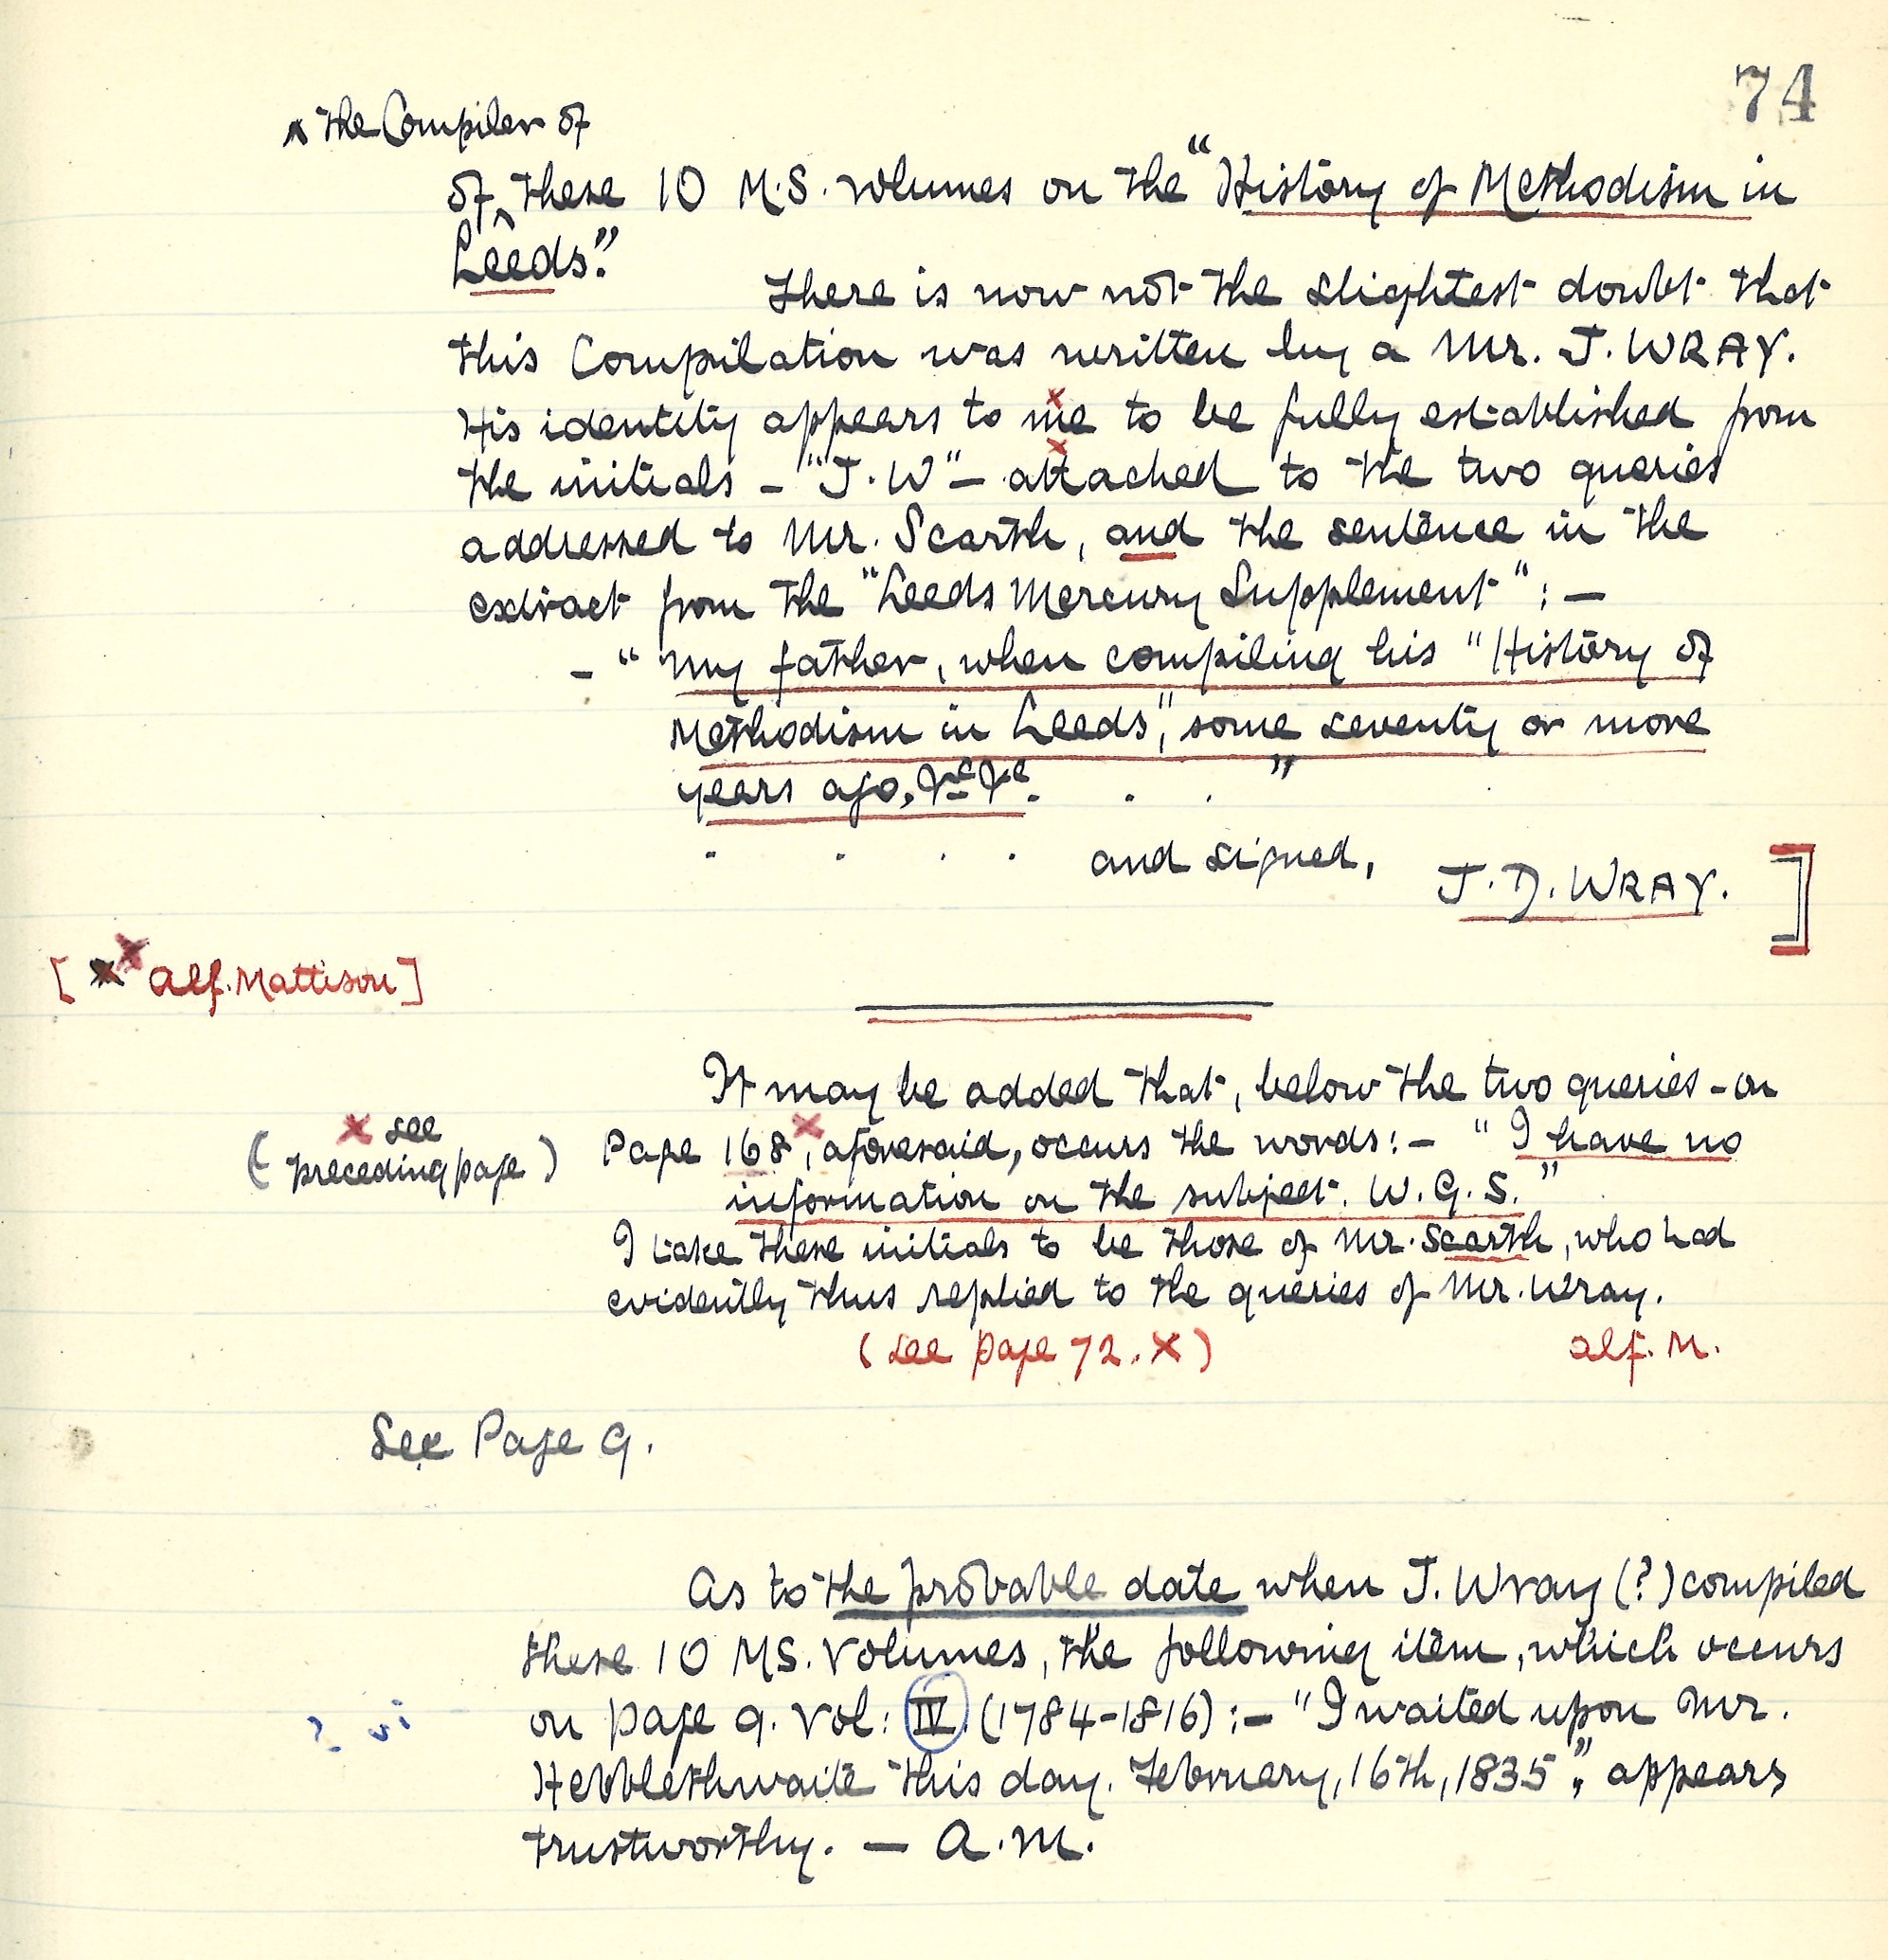 74
^ the Compiler of
of ^ these 10 M.S. volumes on the "History of Methodism in
Leeds."
There is now not the slightest doubt that
this Compilation was written by a Mr. J. WRAY.
His identity appears to me x to be fully established from
the initials – "J.W" – attached to the two queries
addressed to Mr. Scarth, and the sentence in the
extract from the "Leeds Mercury Supplement" : —
– " My father, when compiling his "History of
Methodism in Leeds", some seventy or more
years ago, &c &c. . . "
. . . . and signed, J. D. WRAY. ]
[ x x Alf. Mattison ]
It may be added that, below the two queries – on
( x see
preceding page )
Page 168 x, aforesaid, occurs the words : – " I have no
information on the subject. W. G. S. "
I take these initials to be those of Mr. Scarth, who had
evidently thus replied to the queries of Mr. Wray.
( see page 72. X ) Alf. M.
See Page 9.
As to the probable date when J. Wray (?) compiled
these 10 MS. Volumes, the following item, which occurs
? vi
on page 9. Vol: IV. (1784–1816) : – "I waited upon Mr.
Hebblethwaite this day. February, 16th, 1835", appears
trustworthy. — A. M.